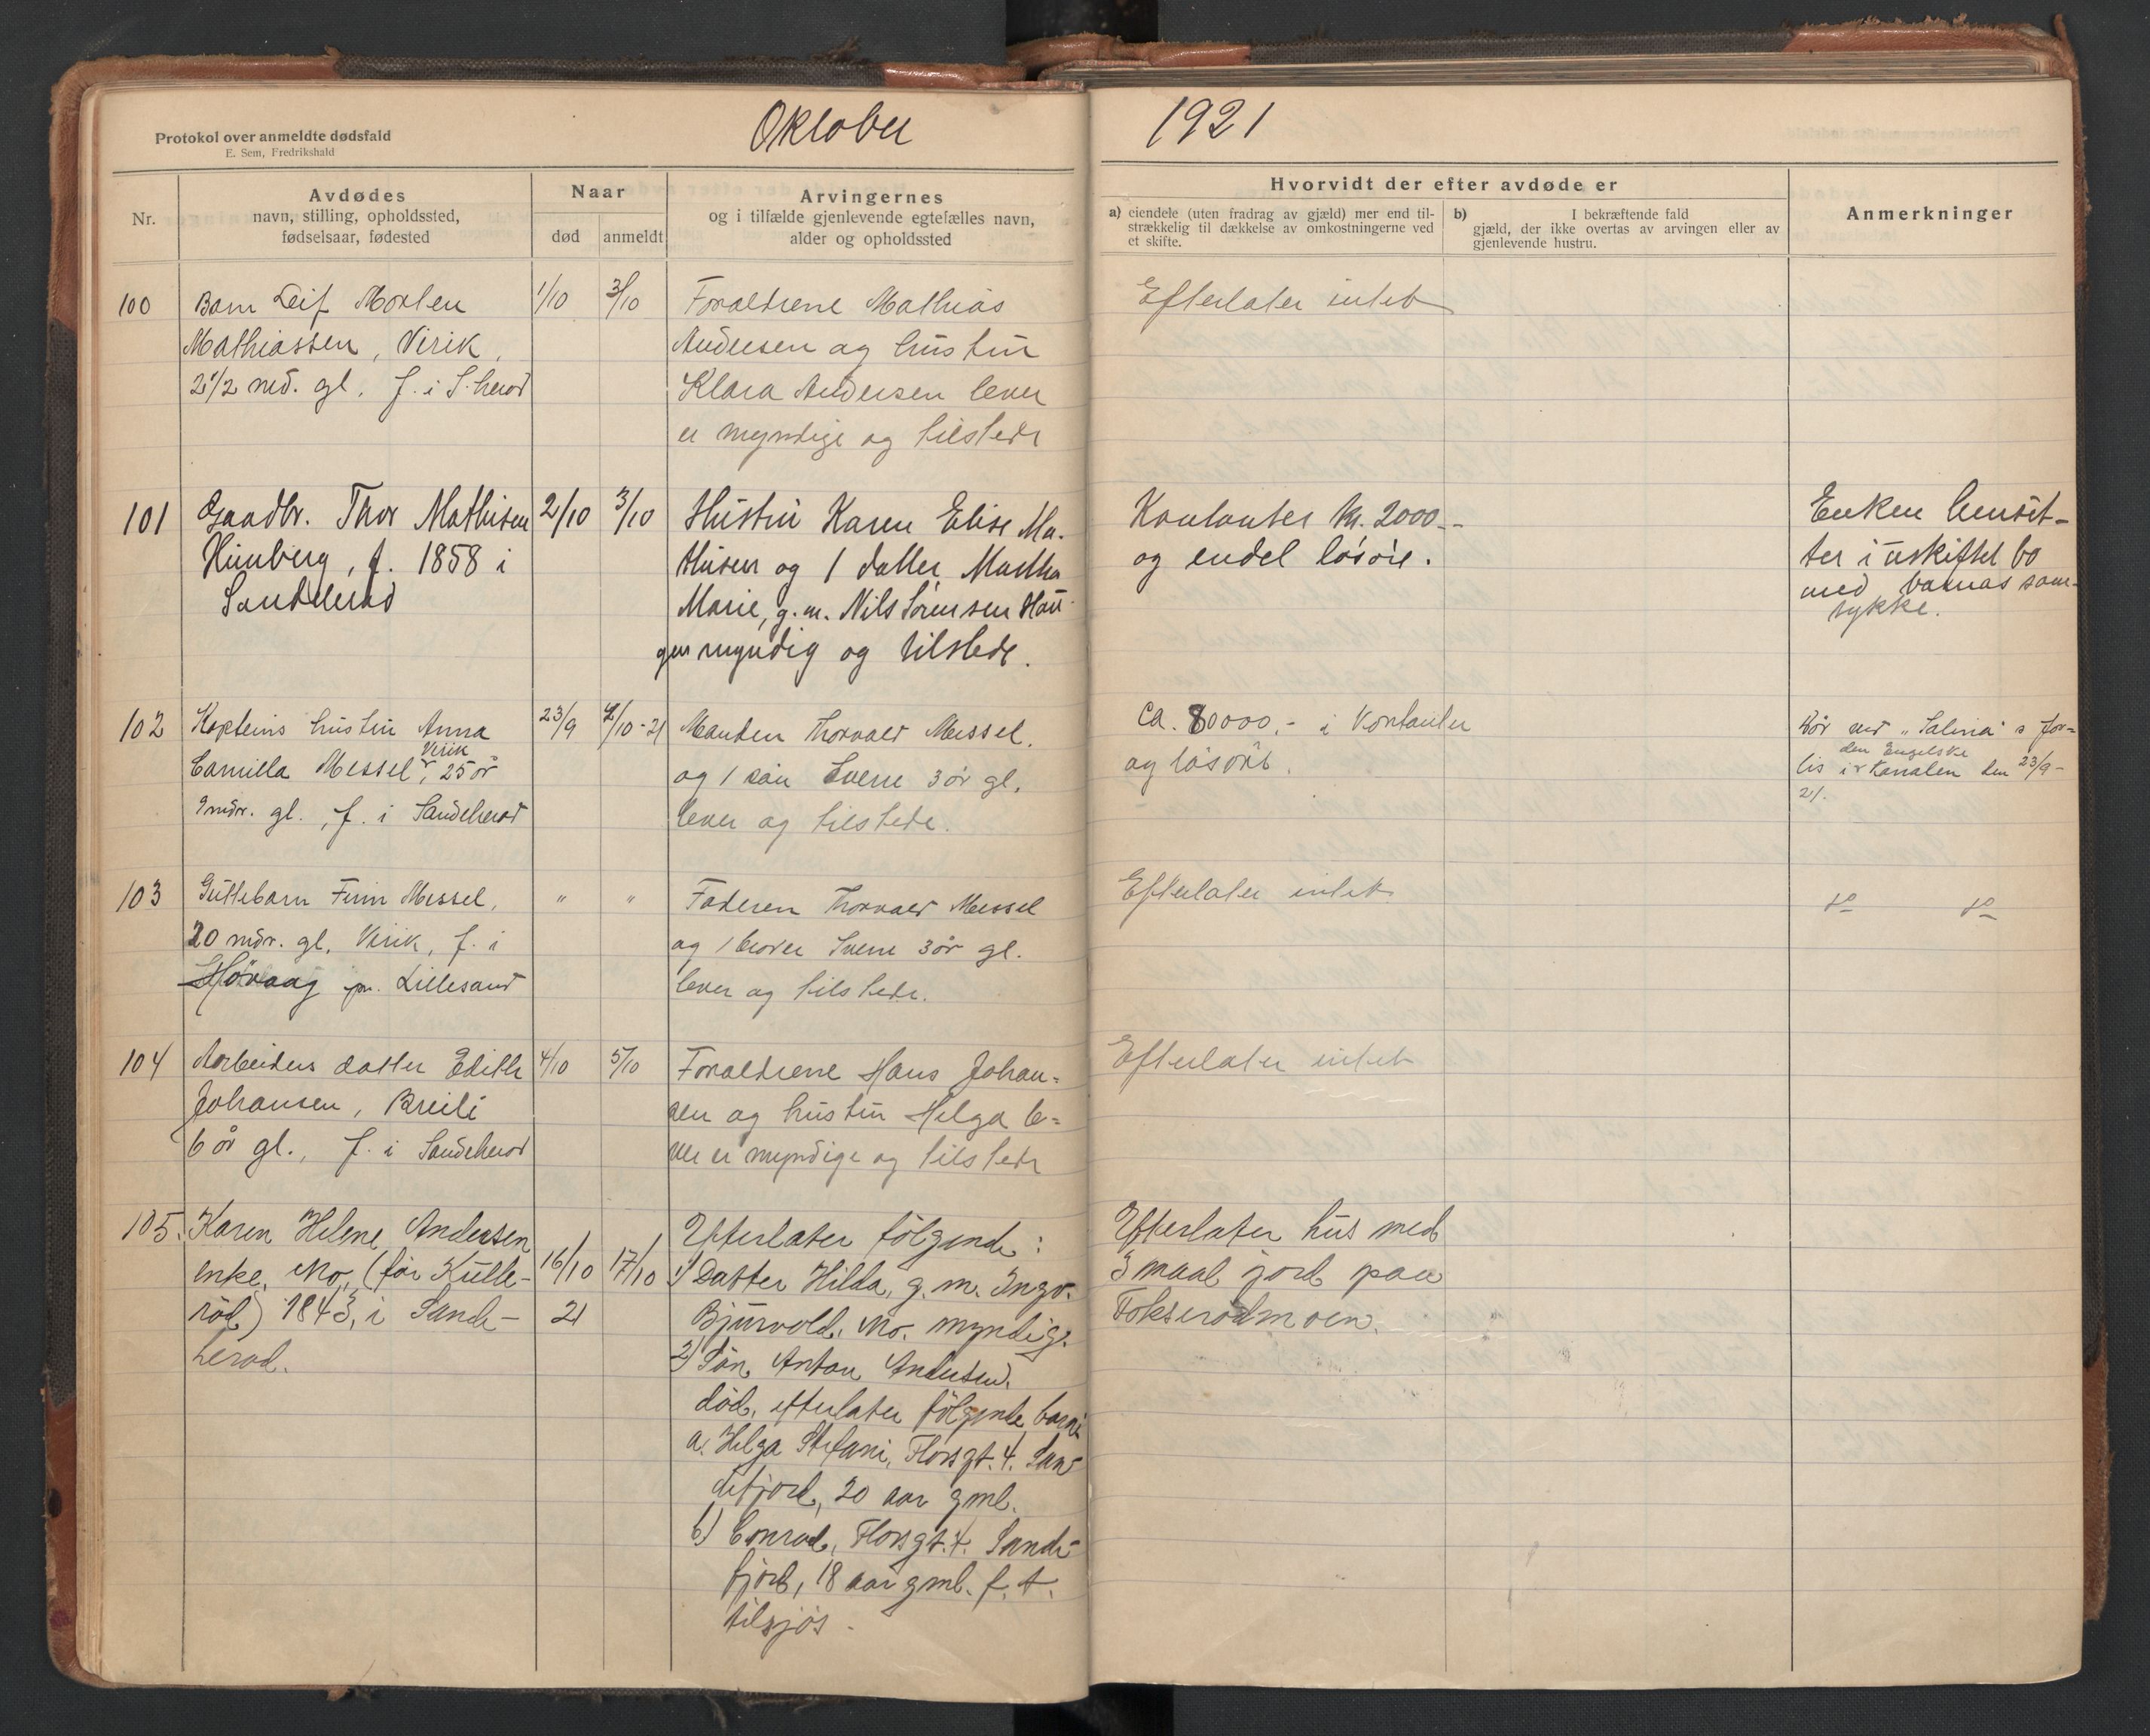 Protokol over anmeldte dødsfald
E. Sem, Fredrikshald
Oktober
1921
Nr.
Avdødes
navn, stilling, opholdssted,
fødselsaar, fødested
Naar
død
anmeldt
Arvingernes
og i tilfælde gjenlevende egtefælles navn,
alder og opholdssted
Hvorvidt der efter avdøde er
a) eiendele (uten fradrag av gjæld) mer end til-
strækkelig til dækkelse av omkostningerne ved
et skifte.
b) I bekræftende fald
gjæld, der ikke overtas av arvingen eller av
gjenlevende hustru.
Anmerkninger
100
Barn Leif Morten
Mathiassen, Virik,
2 1/2 md. gl. f. i S.herod
1/10
3/10
Foraldrene Mathias
Andersen og hustru
Klara Andersen lever
er myndige og tilstede
Efterlater intet
101
Gaardbr. Thor Mathisen
Himberg, f. 1858 i
Sandeherad
2/10
3/10
Hustru Karen Elise Ma-
thisen og 1 datter Martha
Marie, g. m. Nils Sörensen Hau-
gen myndig og tilstede.
Kontanter kr. 2000.-
og endel løsöre.
Enken hensit-
ter i uskiftet bo
med barnas sam-
tykke.
102
Kapteins hustru Anna
Camilla Messel, Virik, 25 år
9 mdr. gl., f. i Sandeherod
23/9
4/10-21
Manden Thorvald Messel.
og 1 sön Sverre 3 år gl.
lever og tilstede.
Ca. 80000.- i kontanter
og lösöre.
Dör ved "Salina"s for=
lis i den Engelske Kanalen den 23/9-
21.
103
Guttebarn Finn Messel,
20 mdr. gl. Virik, f. i
Hövaag pr. Lillesand
"
"
Faderen Thorvald Messel
og 1 broder Sverre 3 år gl.
lever og tilstede.
Efterlater intet
do
do
104
Arbeiders datter Edith
Johansen, Breili
6 år gl., f. i Sandeherod
4/10
5/10
Foraldrene Hans Johan=
sen og hustru Helga le=
ver er myndige og tilstede
Efterlater intet
105.
Karen Helene Andersen
enke, Mo, (før Kulle-
röd) 1843, i Sande-
herad.
16/10
21
17/10
Efterlater fölgende:
1) Datter Hilda, g. m. Ingv.
Bjurvold, Mo. myndige.
2) Sön Anton Andersen.
död, efterlater fölgende barn:
a. Helga Stefani, Thorsgt. 4. San-
defjord, 20 aar gml.
b) Conrad, Thorsgt. 4. Sande-
fjord, 18 aar gml. f. t.
tilsjös.
Efterlater hus med
3 maal jord paa
Fokserödmoen.